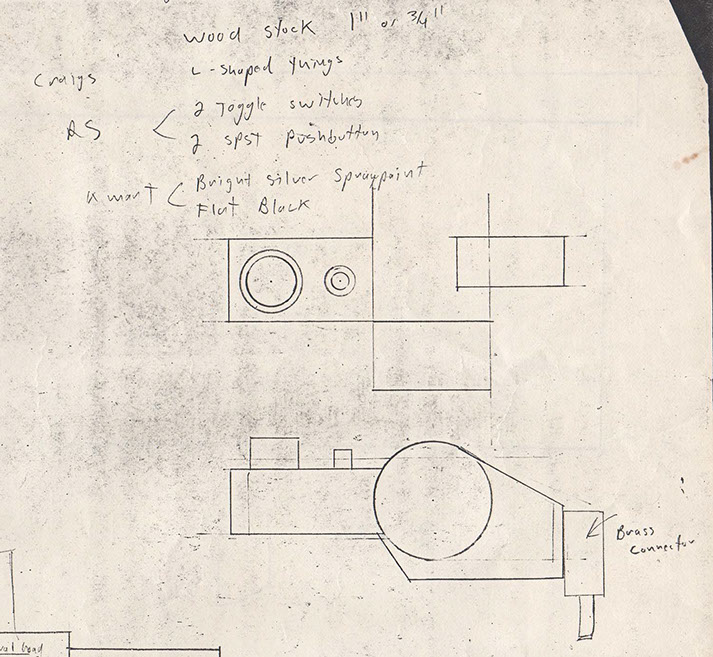 wood stock 1" or 3/4"
L-shaped things
Craigs
2 Toggle switches
RS
2 SPST Pushbutton
Bright silver Spraypaint
Kmart
Flat Black
Brass
Connector